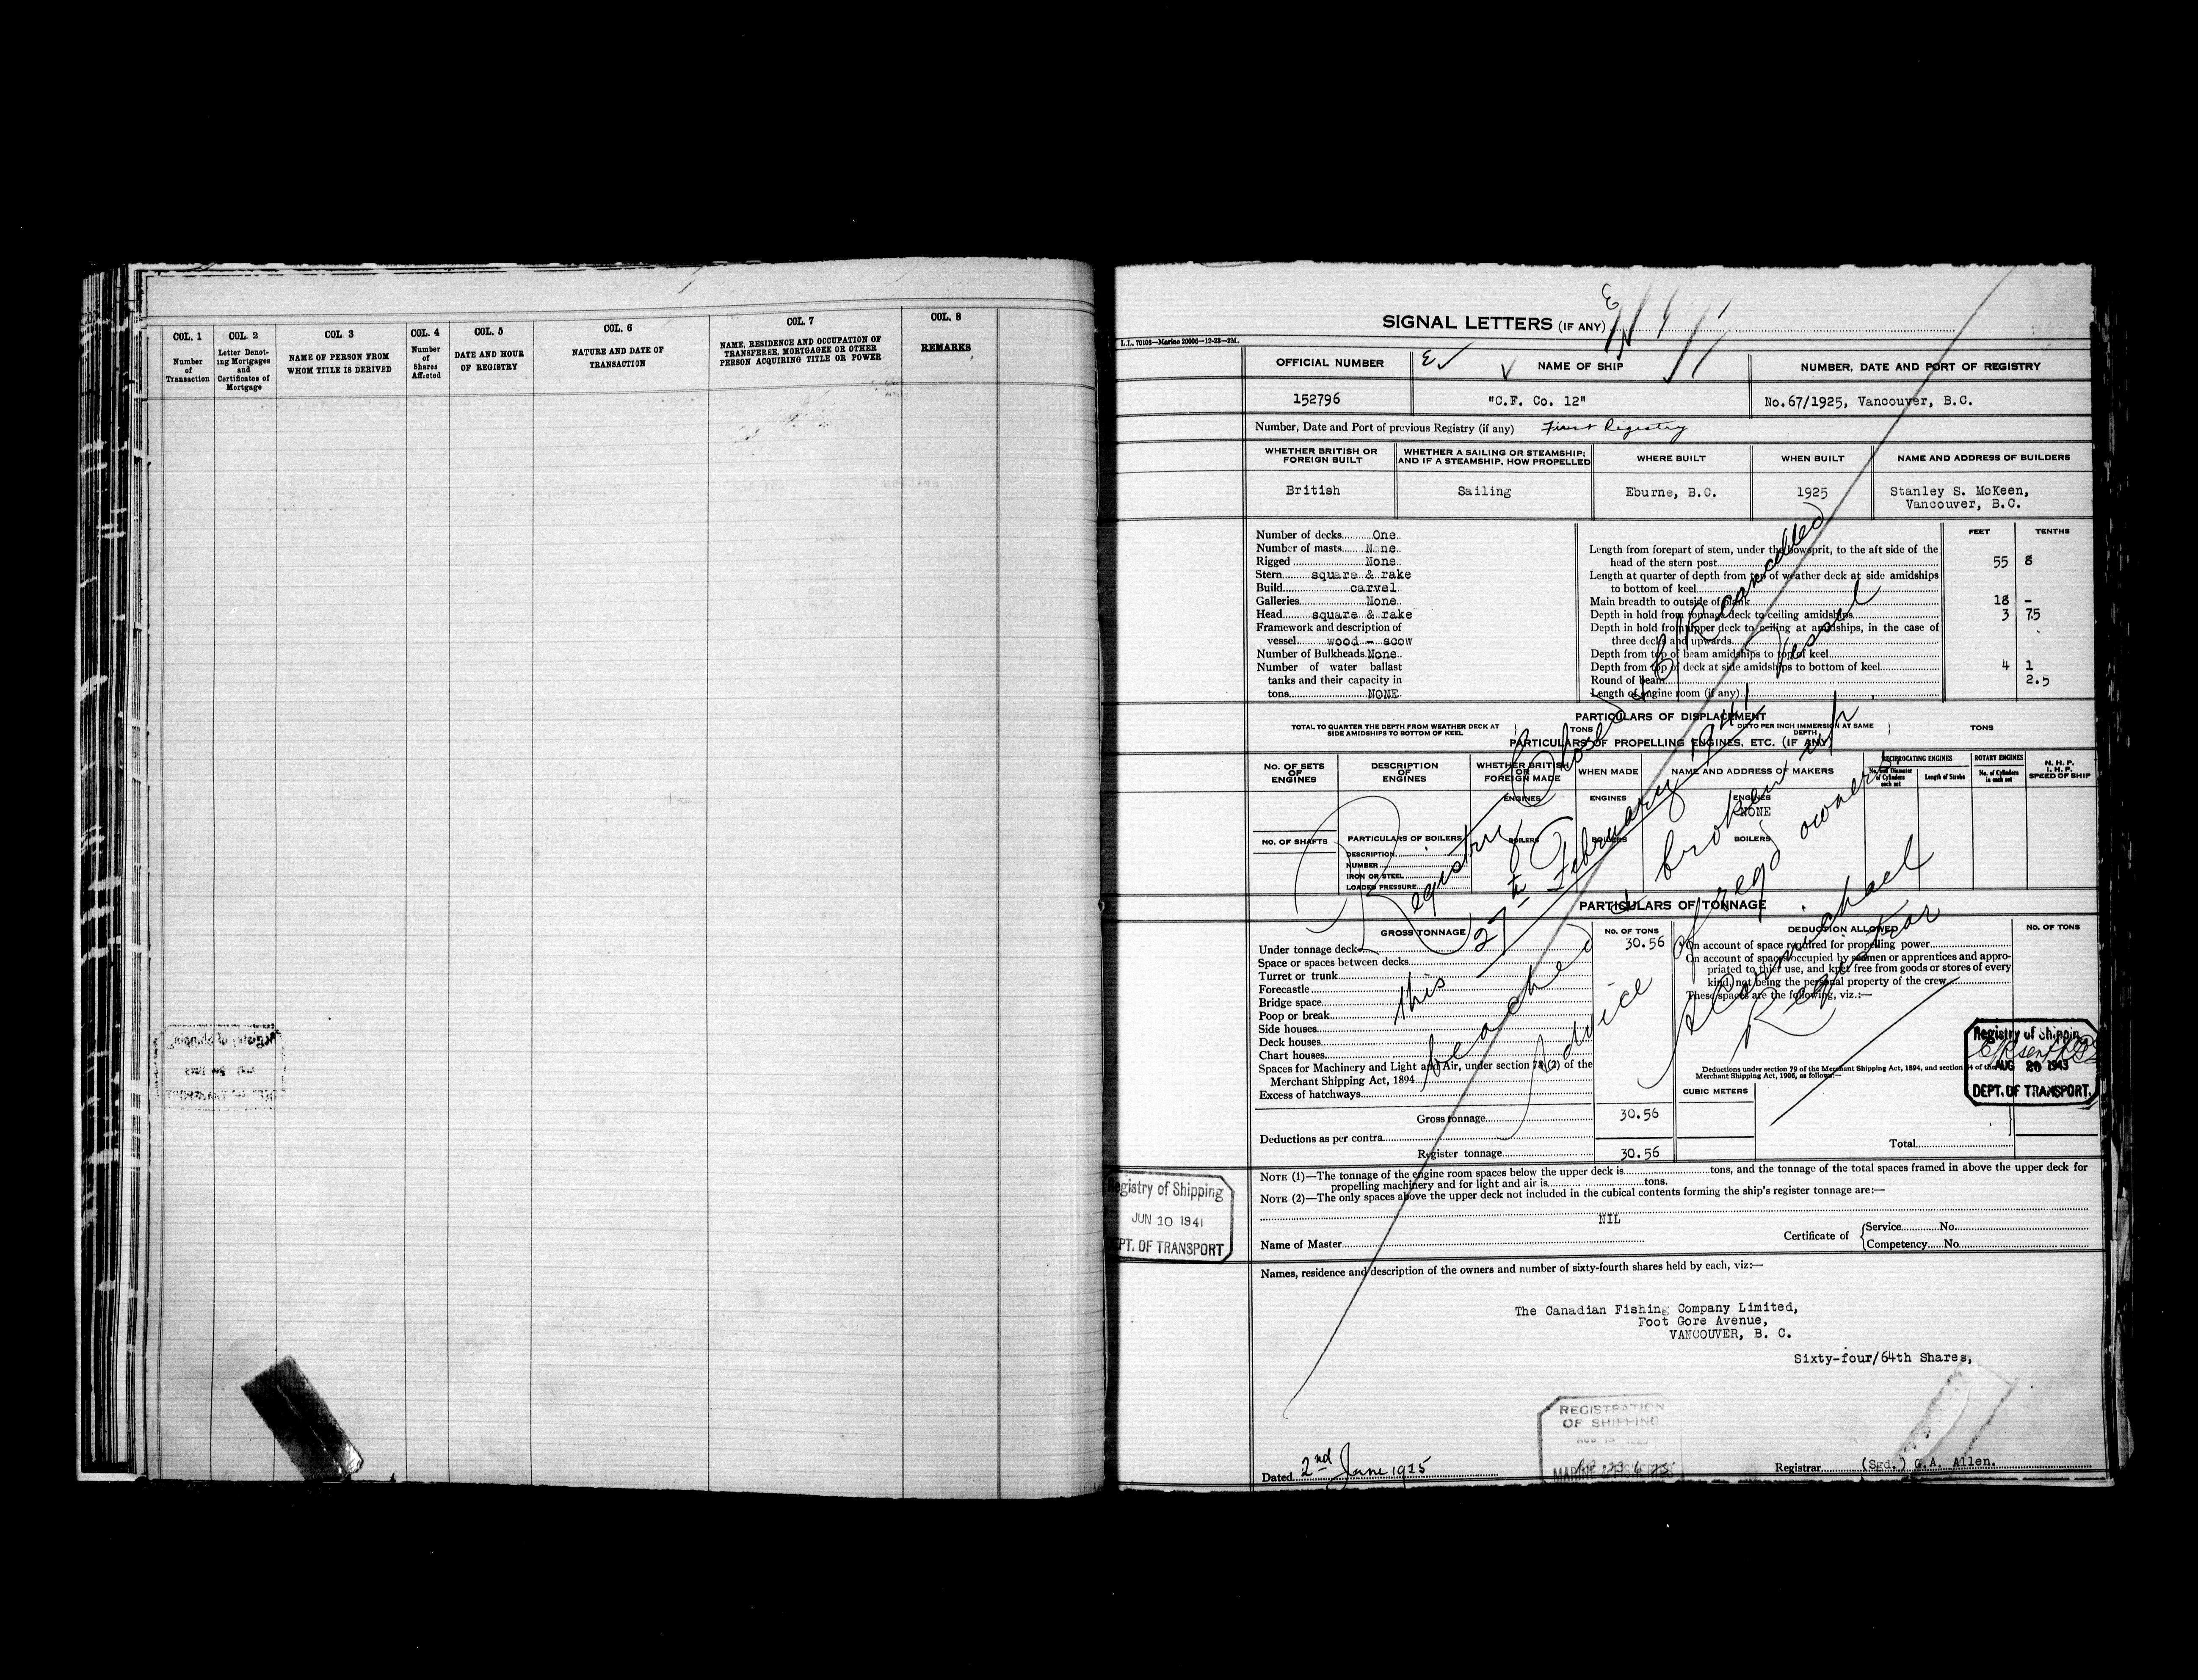 COL. 1
Number
of
Transaction
COL. 2
Letter Denot-
ing Mortgages
and
Certificates of
Mortgage
COL. 3
NAME OF PERSON FROM
WHOM TITLE IS DERIVED
COL. 4
Number
of
Shares
Affected
COL. 5
DATE AND HOUR
OF REGISTRY
COL. 6
NATURE AND DATE OF
TRANSACTION
COL. 7
NAME, RESIDENCE AND OCCUPATION OF
TRANSFEREE, MORTGAGEE OR OTHER
PERSON ACQUIRING TITLE OR POWER
COL. 8
REMARKS
SIGNAL LETTERS (IF ANY)
L.I., 70108—Marine 20006—12-23—2M.
OFFICIAL NUMBER
NAME OF SHIP
NUMBER, DATE AND PORT OF REGISTRY
152796
"C.F. Co. 12"
No.67/1925, Vancouver, B.C.
Number, Date and Port of previous Registry (if any) First Registry
WHETHER BRITISH OR
FOREIGN BUILT
WHETHER A SAILING OR STEAMSHIP;
AND IF A STEAMSHIP, HOW PROPELLED
WHERE BUILT
WHEN BUILT
NAME AND ADDRESS OF BUILDERS
British
Sailing
Eburne, B.C.
1925
Stanley S. McKeen,
Vancouver, B.C.
FEET
TENTHS
Number of decks One
Number of masts None
Rigged None
Stern square & rake
Build carvel
Galleries None
Head square & rake
Framework and description of
vessel wood - scow
Number of Bulkheads None
Number of water ballast
tanks and their capacity in
tons NONE
Length from forepart of stem, under the bowsprit, to the aft side of the
head of the stern post 55 8
Length at quarter of depth from top of weather deck at side amidships
to bottom of keel
Main breadth to outside of plank 18 -
Depth in hold from tonnage deck to ceiling amidships 3 75
Depth in hold from upper deck to ceiling at amidships, in the case of
three decks and upwards
Depth from top of beam amidships to top of keel
Depth from top of deck at side amidships to bottom of keel 4 1
Round of beam 2.5
Length of engine room (if any)
PARTICULARS OF DISPLACEMENT
TOTAL TO QUARTER THE DEPTH FROM WEATHER DECK AT
SIDE AMIDSHIPS TO BOTTOM OF KEEL
TONS
DITTO PER INCH IMMERSION AT SAME
DEPTH
TONS
PARTICULARS OF PROPELLING ENGINES, ETC. (IF ANY)
NO. OF SETS
OF
ENGINES
DESCRIPTION
OF
ENGINES
WHETHER BRITISH
OR
FOREIGN MADE
WHEN MADE
NAME AND ADDRESS OF MAKERS
RECIPROCATING ENGINES
No. and Diameter
of Cylinders
each set
Length of Stroke
ROTARY ENGINES
No. of Cylinders
in each set
N. H. P.
I. H. P.
SPEED OF SHIP
ENGINES
ENGINES
ENGINES
NONE
NO. OF SHAFTS
PARTICULARS OF BOILERS
BOILERS
BOILERS
BOILERS
DESCRIPTION
NUMBER
IRON OR STEEL
LOADED PRESSURE
Registry Closed & CR cancelled
this 27th February 1941 Vessel
beached & broken up
Advice of regd owners
Carmichael
Registrar
PARTICULARS OF TONNAGE
GROSS TONNAGE
NO. OF TONS
DEDUCTION ALLOWED
NO. OF TONS
Under tonnage deck 30.56
Space or spaces between decks
Turret or trunk
Forecastle
Bridge space
Poop or break
Side houses
Deck houses
Chart houses
Spaces for Machinery and Light and Air, under section 78 (2) of the
Merchant Shipping Act, 1894
Excess of hatchways
Gross tonnage 30.56
Deductions as per contra
Register tonnage 30.56
On account of space required for propelling power
On account of spaces occupied by seamen or apprentices and appro-
priated to thier use, and kpet free from goods or stores of every
kind, not being the personal property of the crew
These spaces are the following, viz.:—
Deductions under section 79 of the Merchant Shipping Act, 1894, and section 54 of the
Merchant Shipping Act, 1906, as follows:—
CUBIC METERS
Total
Registry of Shipping
AUG 20 1943
DEPT. OF TRANSPORT.
NOTE (1)—The tonnage of the engine room spaces below the upper deck is tons, and the tonnage of the total spaces framed in above the upper deck for
propelling machinery and for light and air is tons.
NOTE (2)—The only spaces above the upper deck not included in the cubical contents forming the ship's register tonnage are:—
NIL
Registry of Shipping
JUN 10 1941
DEPT. OF TRANSPORT
Name of Master
Certificate of
Service No.
Competency No.
Names, residence and description of the owners and number of sixty-fourth shares held by each, viz:—
The Canadian Fishing Company Limited,
Foot Gore Avenue,
VANCOUVER, B. C.
Sixty-four/64th Shares,
REGISTRATION
OF SHIPPING
Dated 2nd June 1925
Registrar (Sgd.) G.A. Allen.